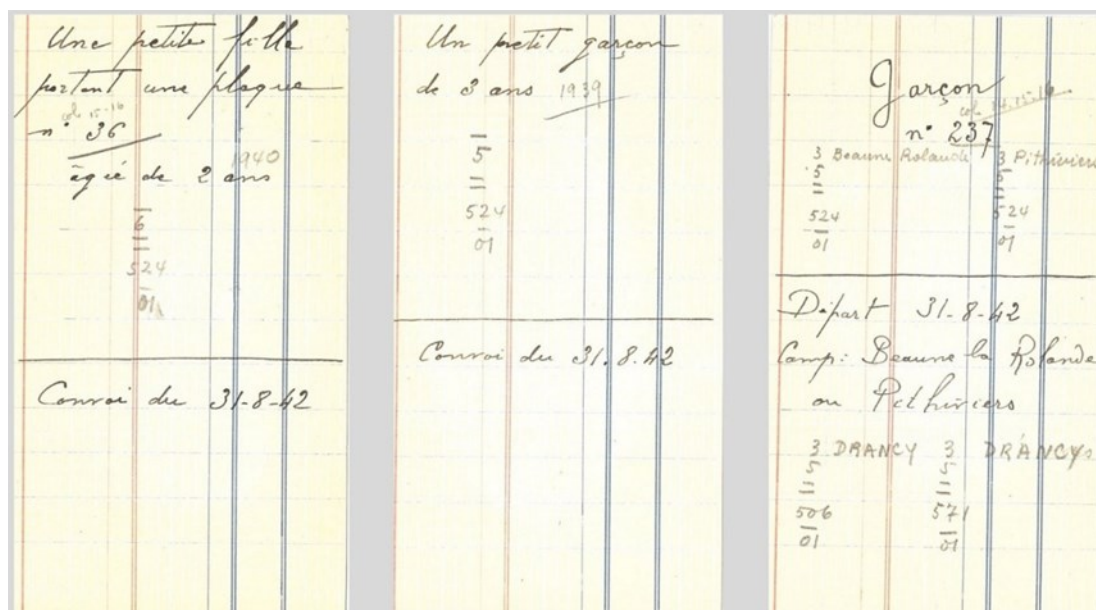 Une petite fille
portant une plaque
col 15-16
n° 36
1940
âgée de 2 ans
6
524
01
Convoi du 31-8-42
Un petit garçon
de 3 ans 1939
5
524
01
Convoi du 31.8.42
Garçon
col. 14.15.16
n° 237
3 Beaune Rolande 3 Pithiviers
5 5
524 524
01 01
Départ 31-8-42
Camp: Beaune la Rolande
ou Pithiviers
3 DRANCY 3 DRANCY
5 5
506 571
01 01